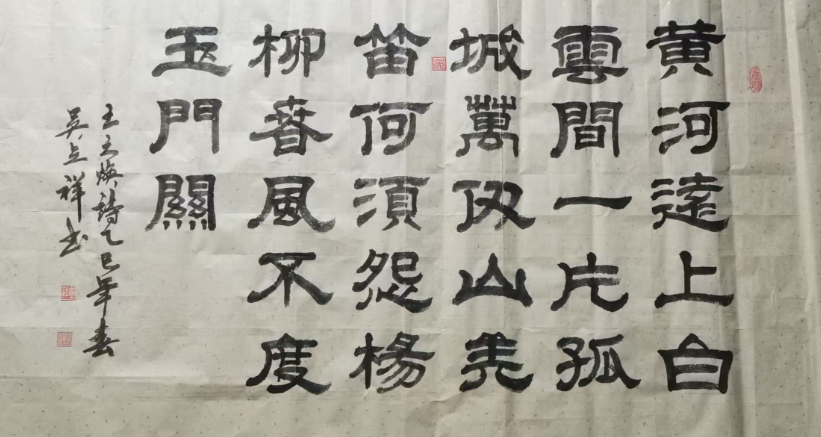 黄河遠上白
雲間一片孤
城萬仞山羌
笛何須怨楊
柳春風不度
玉門關
王之焕詩乙巳年春
吴立祥书